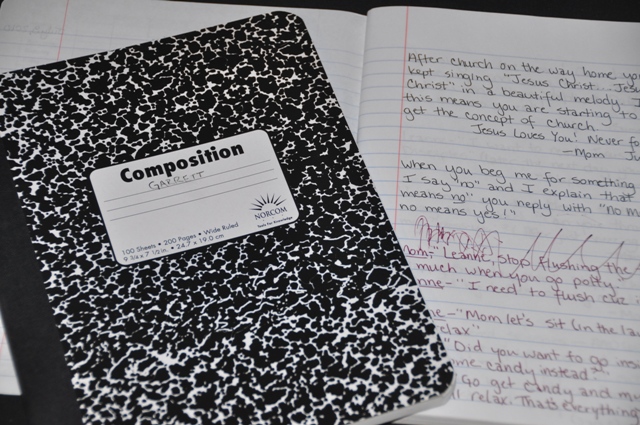 Composition
GARRETT
NORCOM
Tools for Knowledge
100 Sheets • 200 Pages • Wide Ruled
9 3/4 x 7 1/2 in. • 24.7 x 19.0 cm
After church on the way home you
kept singing "Jesus Christ... Jesu
Christ" in a beautiful melody a
this means you are starting to
get the concept of church
Jesus Loves You! Never fo
-Mom
when you beg me for something
I say "no" and I explain that
means no" you reply with "no m
no means yes!"
mom-" Leanne, stop flushing the
much when you go potty
nne-" I need to flush cuz
ne-"Mom let's sit in the la
elax"
"Did you want to go ins
me candy instead?"
Go get candy and
ll relax. That's everything